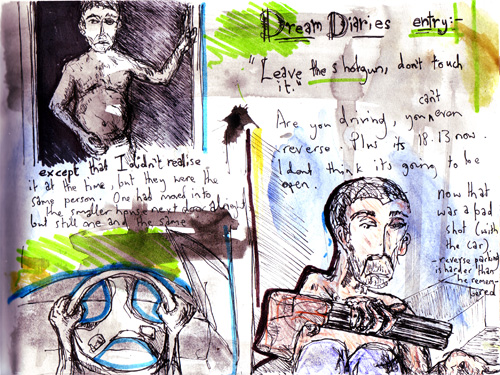 Dream Diaries entry:-
"Leave the shotgun, don't touch
it."
can't
Are you driving, you even
reverse. Plus its 18.13 now.
I dont think its going to be
open.
except that I didn't realise
it at the time, but they were the
same person. One had moved into
the smaller house next door
but still one and the same
now that
was a bad
shot (with
the car)
- reverse parking
is harder than
he remem-
bered